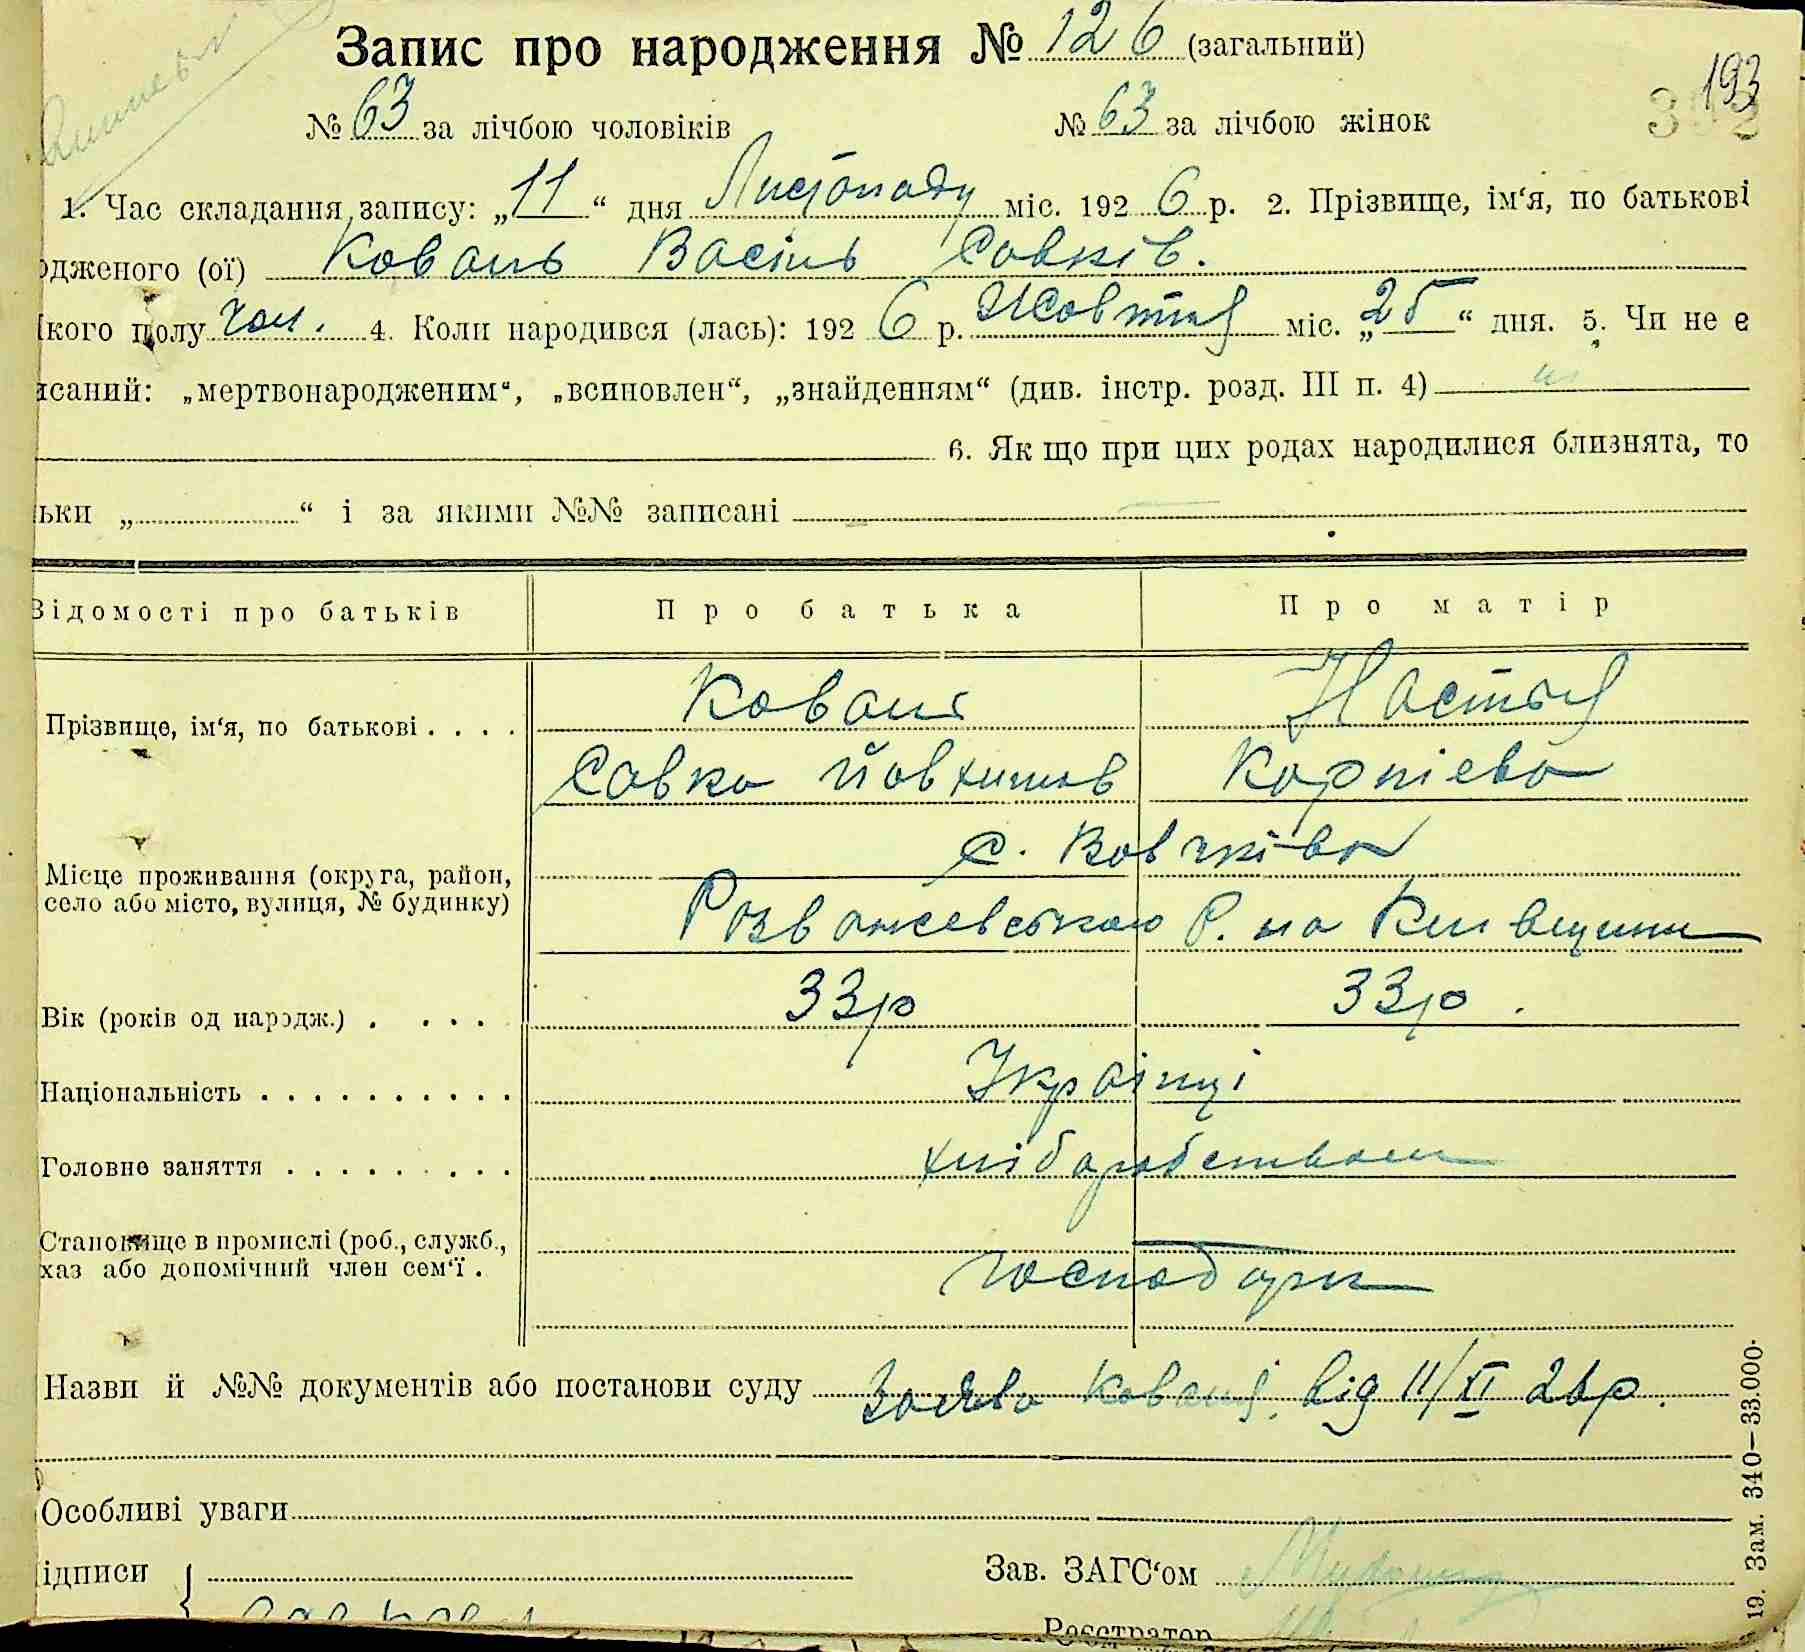 Запис про народження № 126 (загальний)
193
№ 63 за лічбою чоловіків № 63 за лічбою жінок
1. Час складання запису: „11“ дня Листопаду міс. 1926 р. 2. Прізвище, ім‘я, по батькові
одженого (ої) Коваль Василь Савків.
кого полу чол. 4. Коли народився (лась): 1926 р. Жовтня міс. „25“ дня. 5. Чи не є
исаний: „мертвонародженим“, „всиновлен“, „знайденням“ (див. інстр. розд. III п. 4) ні
6. Як що при цих родах народилися близнята, то
ьки „ “ і за якими №№ записані
Відомості про батьків Про батька Про матір
Прізвище, ім‘я, по батькові . . . . Коваль Настя
Савка Йовхимів Карпієва
Місце проживання (округа, район, село або місто, вулиця, № будинку) с. Вовчківа
Розважевського Р. на Київщини
Вік (років од народж.) . . . . 33 р 33 р.
Національність . . . . . . . . . . Українці
Головне заняття . . . . . . . . . хліборобством
Становище в промислі (роб., служб., хаз або допомічний член сем‘ї . господари
Назви й №№ документів або постанови суду Заява Коваля від 11/XI 26 р.
Особливі уваги
ідписи Зав. ЗАГС‘ом
Реєстратор
19. Зам. 340—33.000.